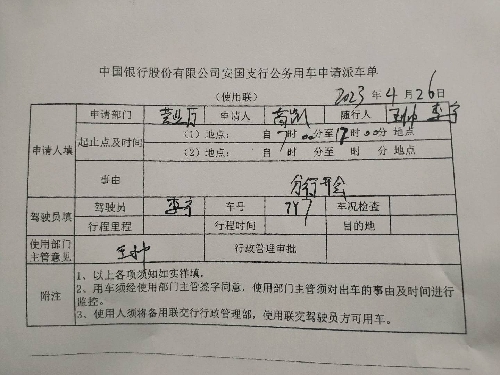 中国银行股份有限公司安国支行公务用车申请派车单
（使用联） 2023 年 4 月 26 日
申请人填 申请部门 营业部 申请人 随行人 李宁
起止点及时间 （1）地点： 自 7 时 00 分至 17 时 00 分 地点
（2）地点： 自 时 分至 时 分 地点
事由 分行开会
驾驶员填 驾驶员 李宁 车号 797 车况检查
行程里程 行程时间 目的地
使用部门主管意见 行政管理审批
附注 1、以上各项须知如实祥填。
2、用车须经使用部门主管签字同意，使用部门主管须对出车的事由及时间进行
监控。
3、使用人须将备用联交行政管理部，使用联交驾驶员方可用车。